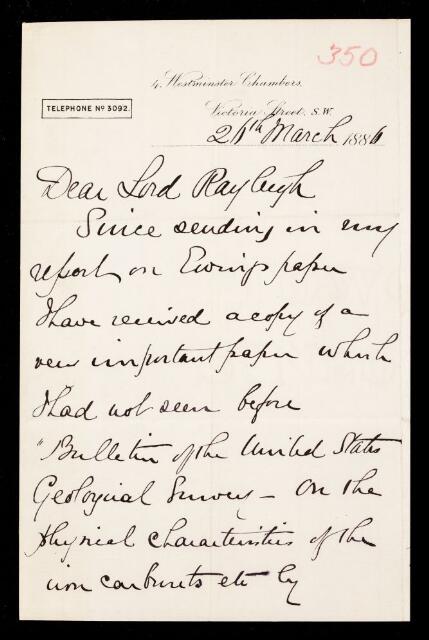 350
4, Westminster Chambers,
TELEPHONE Nº 3092.
Victoria Street, S.W.
26th March 1886
Dear Lord Rayleigh
Since sending in my
report on Ewing's paper
I have received a copy of a
very important paper which
I had not seen before
"Bulletin of the United States
Geological Survey – On the
physical characteristics of the
iron carburets etc by